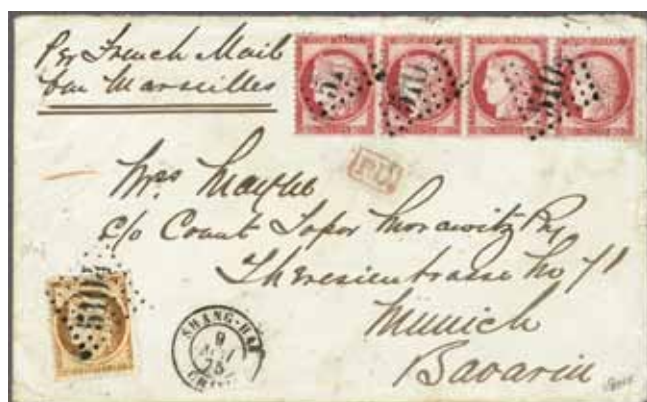 Per French Mail
via Marseilles
5104
5104
P.D.
Mrs
c/o Count Topor Morawitzky
Theresienstrasse No 71
Munich
Bavaria
5104
SHANG-HAI
9
75
CHINE